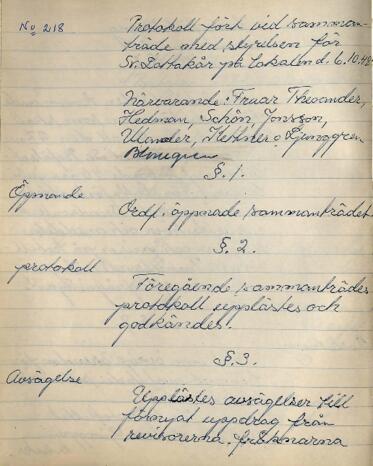 No 218
Protokoll fört vid samman-
träde med styrelsen för
Sv. Lottakår på Lokalen d. 6.10.48
Närvarande: Fruar Theander,
Hedman, Schön, Jonsson,
Ulander, Kettner o Ljunggren
§. 1.
Öpnande
Ordf. öppnade sammanträdet.
§. 2.
protokoll
Föregående sammanträdes
protokoll upplästes och
godkändes.
§. 3.
Avsägelse
Upplästes avsägelser till
förnyat uppdrag från
revisorerna, fröknarna